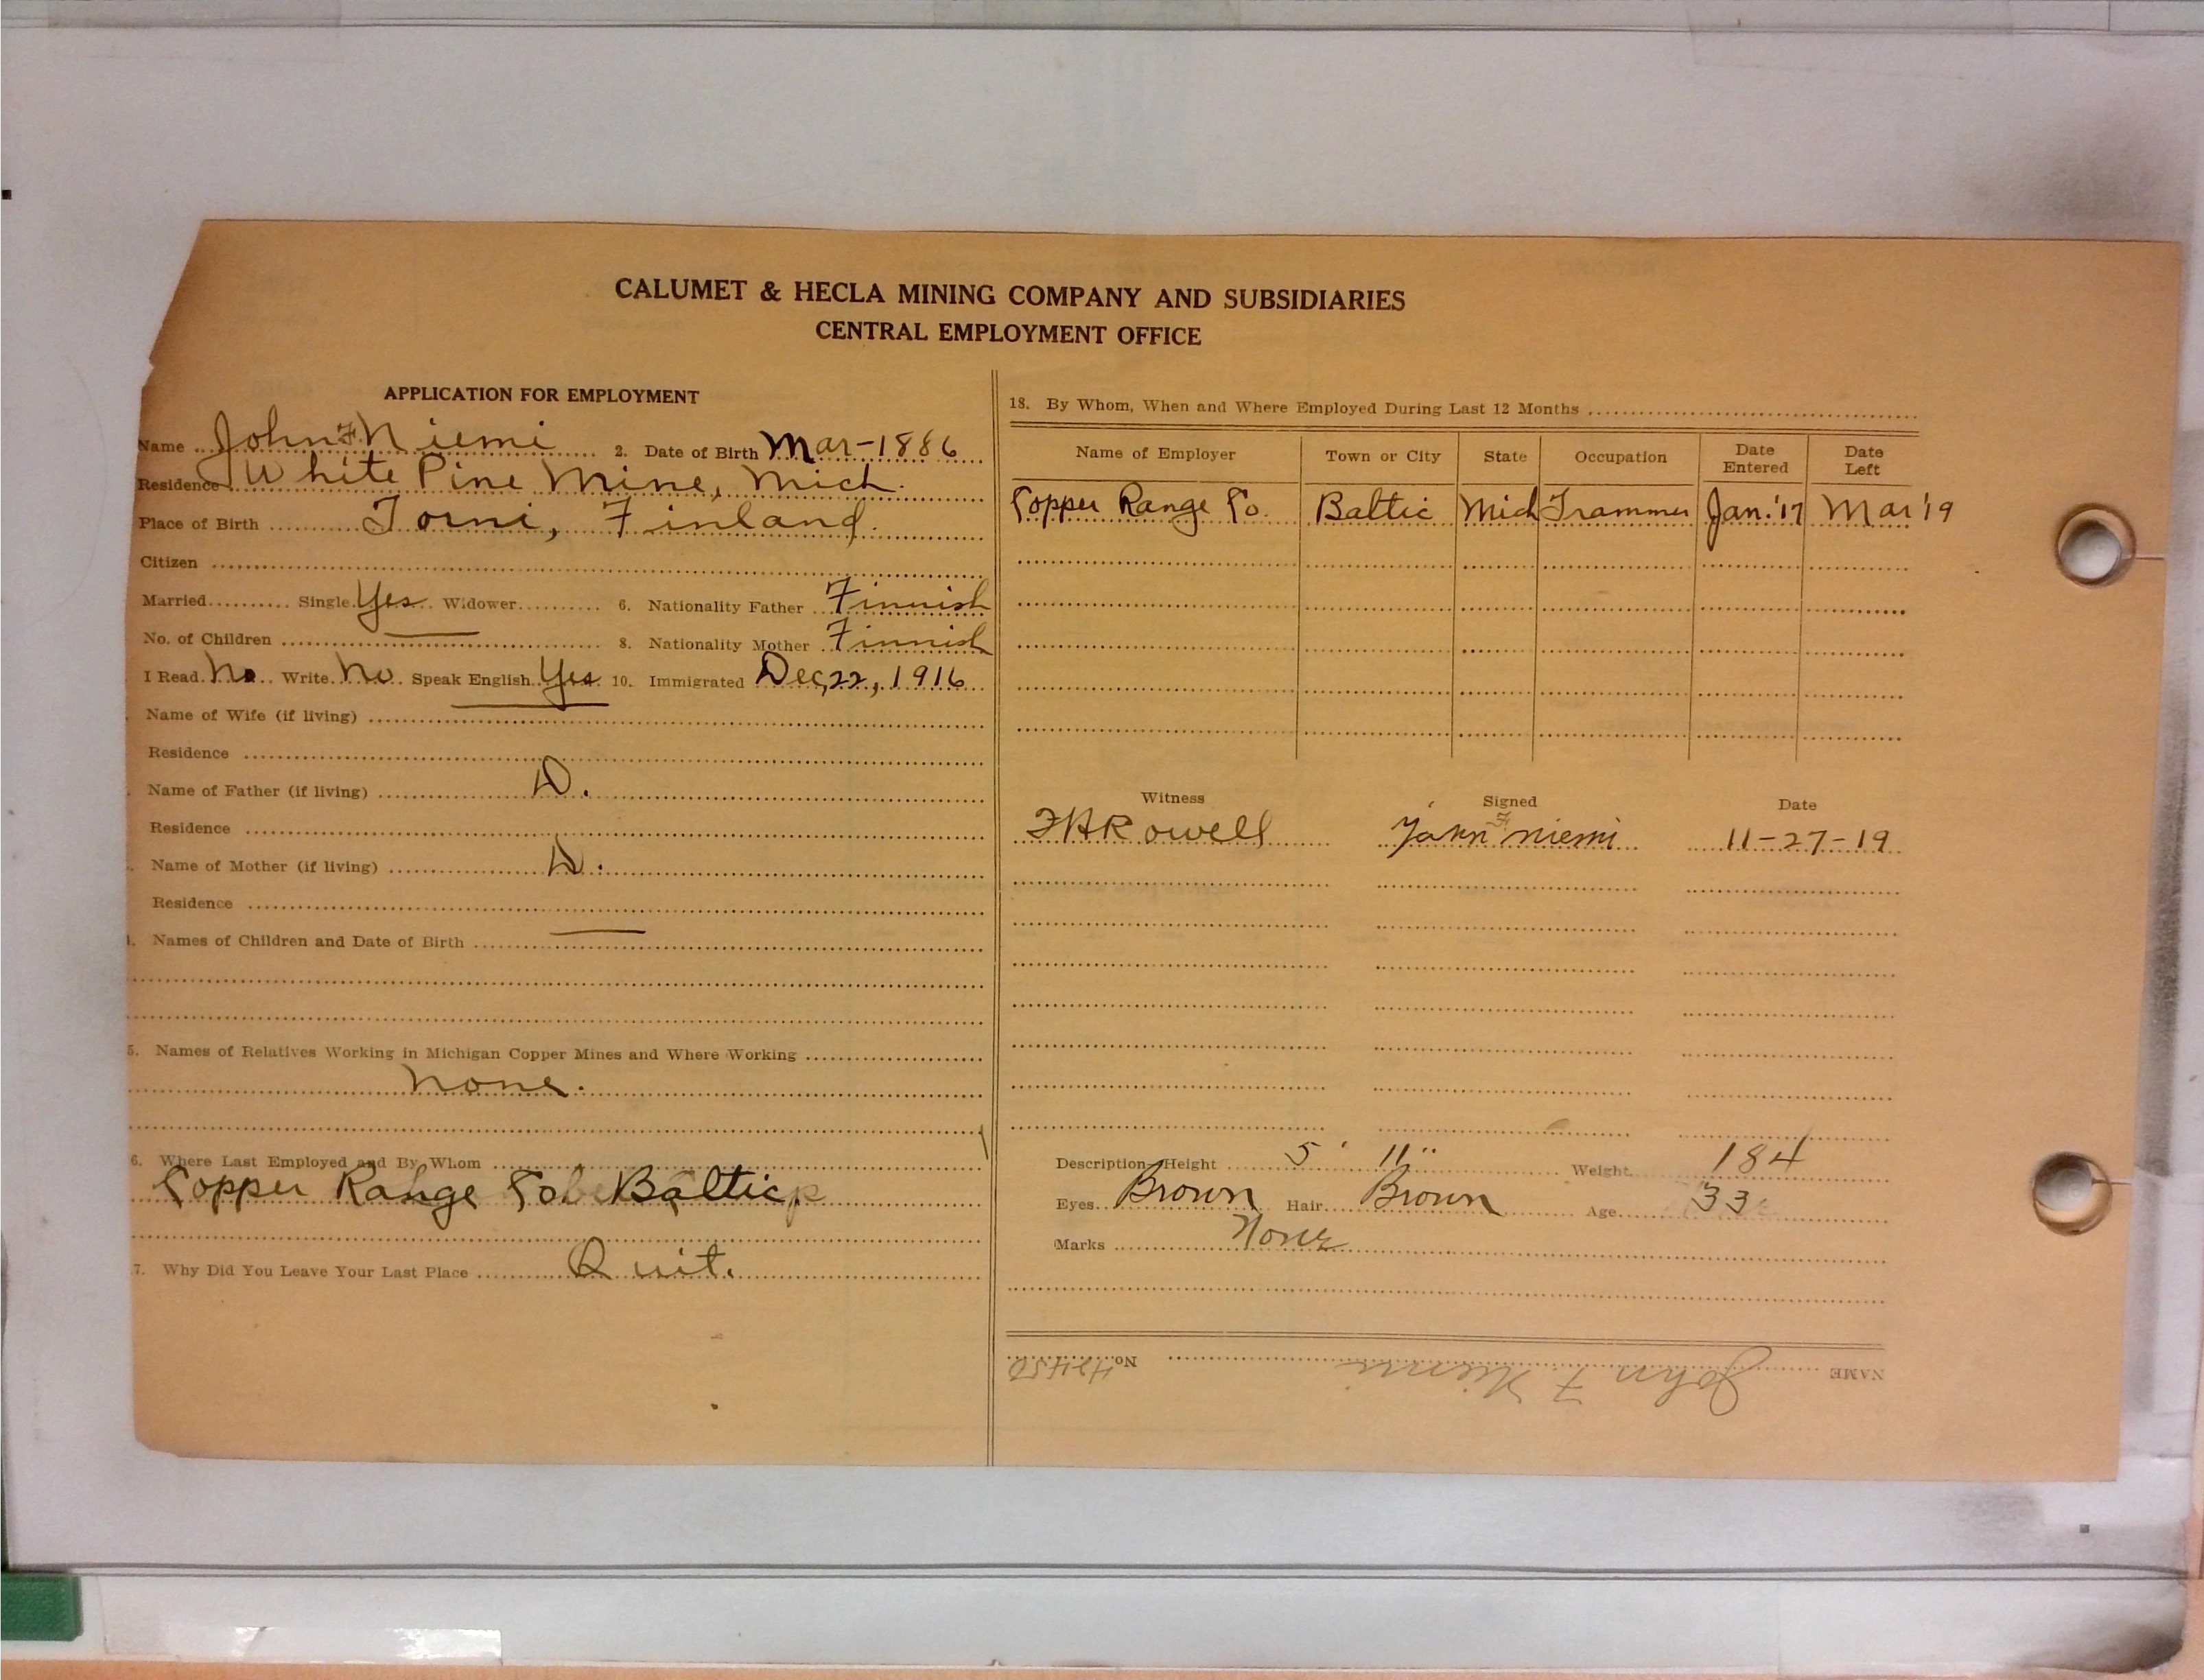 CALUMET & HECLA MINING COMPANY AND SUBSIDIARIES
CENTRAL EMPLOYMENT OFFICE
APPLICATION FOR EMPLOYMENT
Name John F. Niemi 2. Date of Birth Mar-1886
Residence White Pine Mine, Mich.
Place of Birth Torni, Finland.
Citizen
Married Single Yes Widower 6. Nationality Father Finnish
No. of Children 8. Nationality Mother Finnish
I Read No Write No Speak English Yes 10. Immigrated Dec, 22, 1916
Name of Wife (if living)
Residence
Name of Father (if living) D.
Residence
Name of Mother (if living) D.
Residence
Names of Children and Date of Birth
5. Names of Relatives Working in Michigan Copper Mines and Where Working
None.
6. Where Last Employed and By Whom
Copper Range Co. Baltic
7. Why Did You Leave Your Last Place Quit.
18. By Whom, When and Where Employed During Last 12 Months
Name of Employer Town or City State Occupation Date Entered Date Left
Copper Range Co. Baltic Mich Trammer Jan. '17 Mar '19
Witness Signed Date
F H Rowell John F Niemi 11-27-19
Description Height 5' 11" Weight 184
Eyes Brown Hair Brown Age 33
Marks None
NAME John F Niemi No. 42450